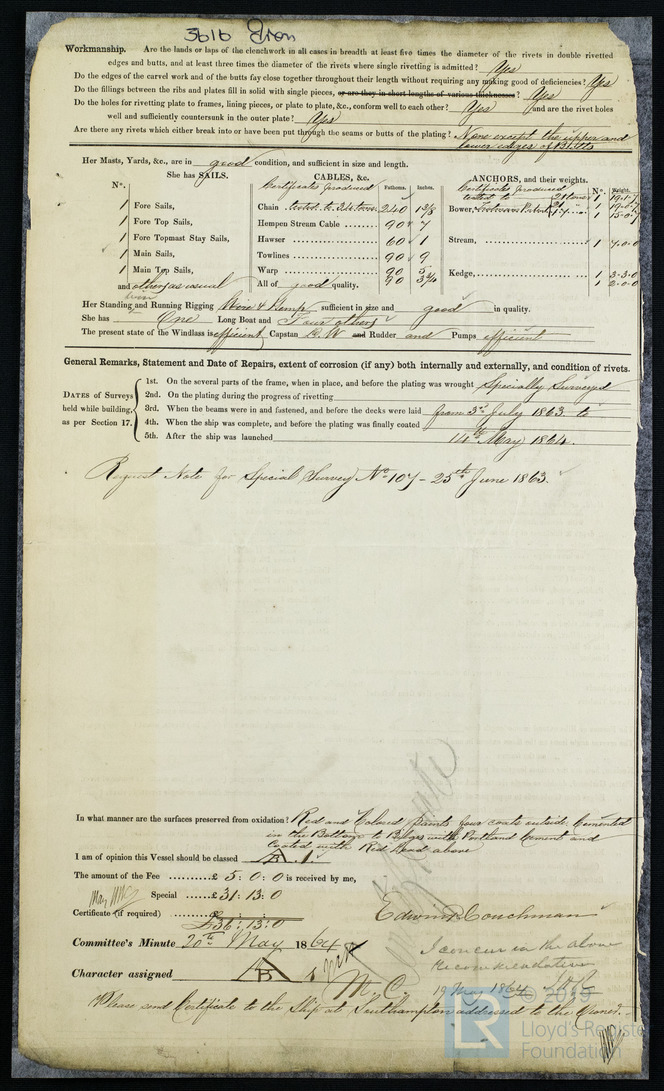 3616 Iron
Workmanship. Are the lands or laps of the clenchwork in all cases in breadth at least five times the diameter of the rivets in double rivetted
edges and butts, and at least three times the diameter of the rivets where single rivetting is admitted? Yes
Do the edges of the carvel work and of the butts fay close together throughout their length without requiring any making good of deficiencies? Yes
Do the fillings between the ribs and plates fill in solid with single pieces, or are they in short lengths of various thicknesses? Yes
Do the holes for rivetting plate to frames, lining pieces, or plate to plate, &c., conform well to each other? Yes and are the rivet holes
well and sufficiently countersunk in the outer plate? Yes
Are there any rivets which either break into or have been put through the seams or butts of the plating? None except the upper and
lower edges of Butts
Her Masts, Yards, &c., are in good condition, and sufficient in size and length.
She has SAILS.
N°.
1 Fore Sails,
1 Fore Top Sails,
1 Fore Topmast Stay Sails,
1 Main Sails,
1 Main Top Sails,
and others as usual
CABLES, &c.
Certificates produced Fathoms. Inches.
Chain tested to 34 tons 240 1 3/8
Hempen Stream Cable 90 7
Hawser 60 1
Towlines 90 9
Warp 90 5
All of good quality. 90 3 3/4
ANCHORS, and their weights.
Certificates produced N°. Weight.
tested to 21 tons 1
Bower, 1
1
Stream, 1 7.0.0
Kedge, 1 3-3.0
1 2.0.0
Her Standing and Running Rigging Wire & Hemp sufficient in size and good in quality.
She has One Long Boat and Four others
The present state of the Windlass is efficient Capstan and Rudder and Pumps efficient
General Remarks, Statement and Date of Repairs, extent of corrosion (if any) both internally and externally, and condition of rivets.
DATES of Surveys held while building, as per Section 17.
1st. On the several parts of the frame, when in place, and before the plating was wrought Specially Surveyed
2nd. On the plating during the progress of rivetting
3rd. When the beams were in and fastened, and before the decks were laid from 3rd July 1863 to
4th. When the ship was complete, and before the plating was finally coated
5th. After the ship was launched 14th May 1864.
Request Note for Special Survey No 107 - 25th June 1863.
In what manner are the surfaces preserved from oxidation? Red and Colored paints four coats outside Cemented
in the Bottom to Bilges with Portland Cement and
Coated with Red Lead above
I am of opinion this Vessel should be classed A B. 1.
The amount of the Fee £ 5 : 0 : 0 is received by me,
Special £ 31 : 13 : 0
Certificate (if required)
£36 : 13 : 0
Edwin Couchman
Committee's Minute 20th May 1864
I concur in the above
recommendation
Character assigned A B 1
19 May 1864
Please send Certificate to the Ship at Southampton addressed to the Owner.
LR © 2019
Lloyd's Register
Foundation